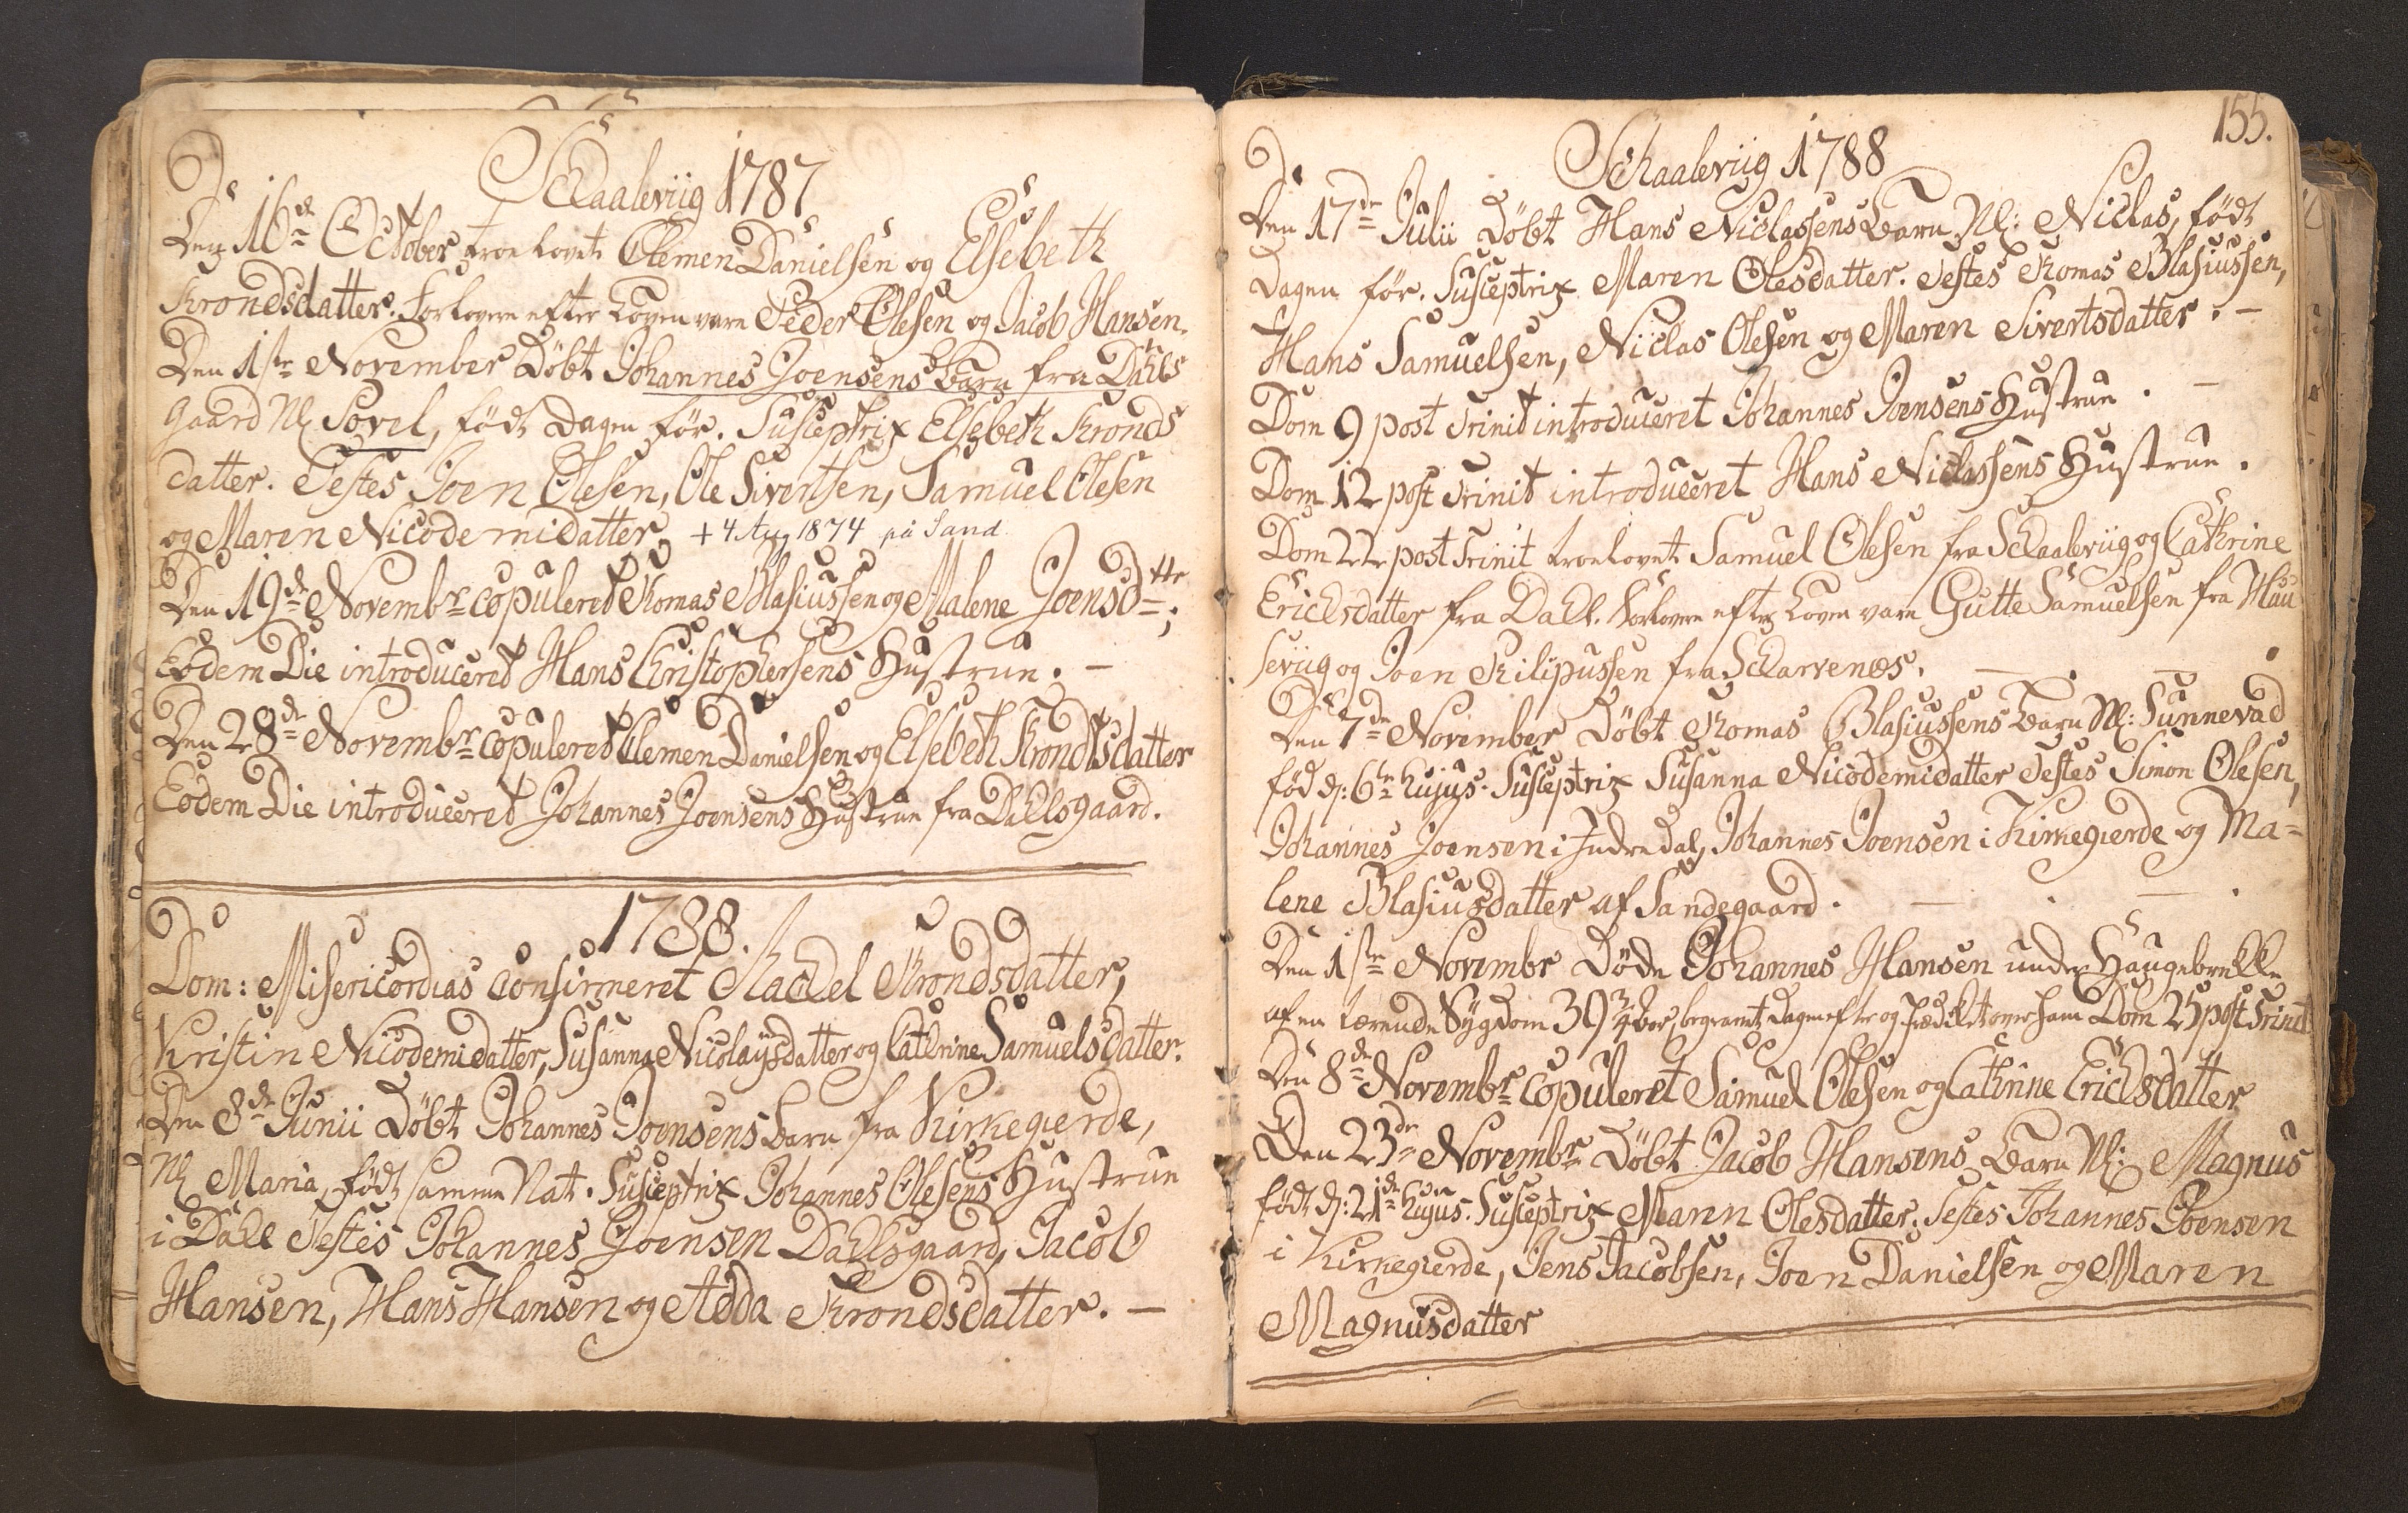 Schaalevüg 1787
Den 16de October troelovet Clemen Danielsen og Elsebeth
Throndsdatter. Forlovere efter Loven vare Peder Olesen og Jacob Hansen.
Den 1ste November Döbt Johannes Joensens Barn fra Dahls
gaard Nl Sovel, födt Dagen för. Susceptrix Elsebeth Thronds
datter. Testes Joen Olesen, Ole Sivertsen, Samuel Olesen
og Maren Nicodemidatter. + 4 Aug 1874 på Sand
Den 19de Novembr copuleret Thomas Blasiussen og Malene Joensdttr;
Eodem Die introduceret Hans Christophersens Hustrue. —
Den 28de Novembr copuleret Clemen Danielsen og Elsebeth Throndsdatter
Eodem Die introduceret Johannes Joensens Hustrue fra Dahlsgaard.
1788.
Dom: Misericordias confirmeret Rachel Throndsdatter,
Kristin Nicodemidatter, Susanna Nicolaysdatter og Cathrine Samuelsdatter.
Den 8de Junii Döbt Johannes Joensens Barn fra Kirkegierde,
Nl Maria, födt samme Nat. Susceptrix Johannes Olesens Hustrue
i Dahl Testes Johannes Joensen Dahlsgaard, Jacob
Hansen, Hans Hansen og Adda Throndsdatter. —
155.
Schaalevüg 1788
Den 17de Julii Döbt Hans Niclassens Barn Nl: Niclas, födt
Dagen för. Susceptrix Maren Olesdatter. Testes Thomas Blasiussen,
Hans Samuelsen, Niclas Olesen og Maren Sivertsdatter. —
Dom 9 post Trinit introduceret Johannes Joensens Hustrue. —
Dom 12 post Trinit introduceret Hans Niclassens Hustrue.
Dom 22 post Trinit troelovet Samuel Olesen fra Schaalevüg og Cathrine
Erichsdatter fra Dahl. Forlovere efter Loven vare Gutte Samuelsen fra Hau
sevüg og Joen Philipussen fra Scharvenæs. — . —
Den 7de November Döbt Thomas Blasiussens Barn Nl: Sunnevad
föd d: 6te hujus. Susceptrix Susanna Nicodemidatter Testes Simon Olesen,
Johannes Joensen i Indredal, Johannes Joensen i Kirkegierde og Ma=
lene Blasiusdatter af Sandegaard. — . — .
Den 1ste Novembr Döde Johannes Hansen under Haugebrekke
af en tærende Sygdom 39 3/4 Aar, begravet Dagen efter og prædiket over ham Dom 25 post Trinit
Den 8de Novembr copuleret Samuel Olesen og Cathrine Erichsdatter
Den 23de Novembr Döbt Jacob Hansens Barn Nl: Magnus
födt d: 21de hujus. Susceptrix Maren Olesdatter. Testes Johannes Joensen
i Kirkegierde, Jens Jacobsen, Joen Danielsen og Maren
Magnusdatter